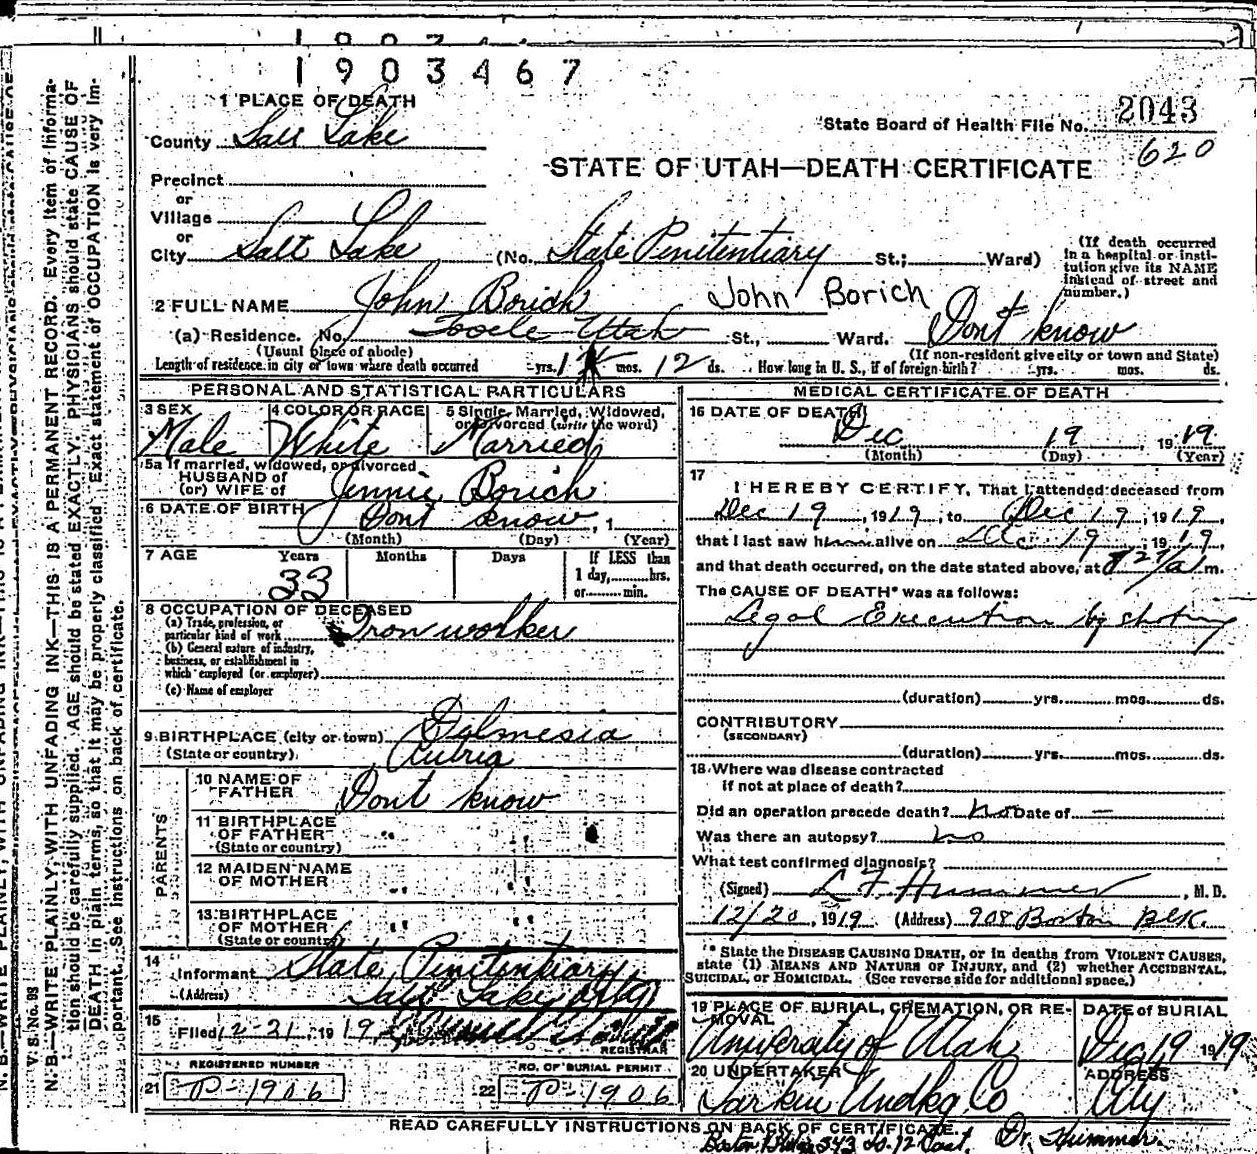 1903467
1 PLACE OF DEATH
State Board of Health File No. 2043
County Salt Lake
620
STATE OF UTAH—DEATH CERTIFICATE
Precinct
or
Village
or
City Salt Lake (No. State Penitentiary St.; Ward)
(If death occurred in a hospital or institution give its NAME instead of street and number.)
2 FULL NAME John Borich John Borich
(a) Residence. No. Tooele Utah St., Ward. Dont know
(Usual place of abode) (If non-resident give city or town and State)
Length of residence in city or town where death occurred yrs. 1 mos. 12 ds. How long in U. S., if of foreign birth? yrs. mos. ds.
PERSONAL AND STATISTICAL PARTICULARS
3 SEX 4 COLOR OR RACE 5 Single, Married, Widowed, or Divorced (write the word)
Male White Married
5a If married, widowed, or divorced
HUSBAND of
(or) WIFE of Jennie Borich
6 DATE OF BIRTH Dont know, 1
(Month) (Day) (Year)
7 AGE Years Months Days If LESS than
1 day, hrs.
or min.
33
8 OCCUPATION OF DECEASED
(a) Trade, profession, or
particular kind of work Iron worker
(b) General nature of industry,
business, or establishment in
which employed (or employer)
(c) Name of employer
9 BIRTHPLACE (city or town) Dalmesia
(State or country) Autria
PARENTS
10 NAME OF
FATHER Dont know
11 BIRTHPLACE
OF FATHER " "
(State or country)
12 MAIDEN NAME
OF MOTHER " "
13 BIRTHPLACE
OF MOTHER " "
(State or country)
14
Informant State Penitentiary
(Address) Salt Lake City
15
Filed 12-21, 1919
REGISTRAR
REGISTERED NUMBER NO. OF BURIAL PERMIT
21 P-1906 22 P-1906
MEDICAL CERTIFICATE OF DEATH
16 DATE OF DEATH
Dec 19 1919
(Month) (Day) (Year)
17
I HEREBY CERTIFY, That I attended deceased from
Dec 19, 1919, to Dec 19, 1919,
that I last saw him alive on Dec 19, 1919,
and that death occurred, on the date stated above, at 827 a m.
The CAUSE OF DEATH* was as follows:
Legal Execution by shoting
(duration) yrs. mos. ds.
CONTRIBUTORY
(SECONDARY)
(duration) yrs. mos. ds.
18 Where was disease contracted
if not at place of death?
Did an operation precede death? no Date of —
Was there an autopsy? no
What test confirmed diagnosis?
(Signed) L F Hummer, M. D.
12/20, 1919 (Address) 908 Boston Blk.
* State the DISEASE CAUSING DEATH, or in deaths from VIOLENT CAUSES,
state (1) MEANS AND NATURE OF INJURY, and (2) whether ACCIDENTAL,
SUICIDAL, or HOMICIDAL. (See reverse side for additional space.)
19 PLACE OF BURIAL, CREMATION, OR RE- DATE of BURIAL
MOVAL
University of Utah Dec 19 1919
20 UNDERTAKER ADDRESS
Larkin Undkg Co City
READ CAREFULLY INSTRUCTIONS ON BACK OF CERTIFICATE.
Boston Bldg 343 So. 12 East Dr. Hummer.
V. S. No. 98
N. B.—WRITE PLAINLY, WITH UNFADING INK—THIS IS A PERMANENT RECORD. Every item of informa-
tion should be carefully supplied. AGE should be stated EXACTLY. PHYSICIANS should state CAUSE OF
DEATH in plain terms, so that it may be properly classified. Exact statement of OCCUPATION is very im-
portant. See instructions on back of certificate.